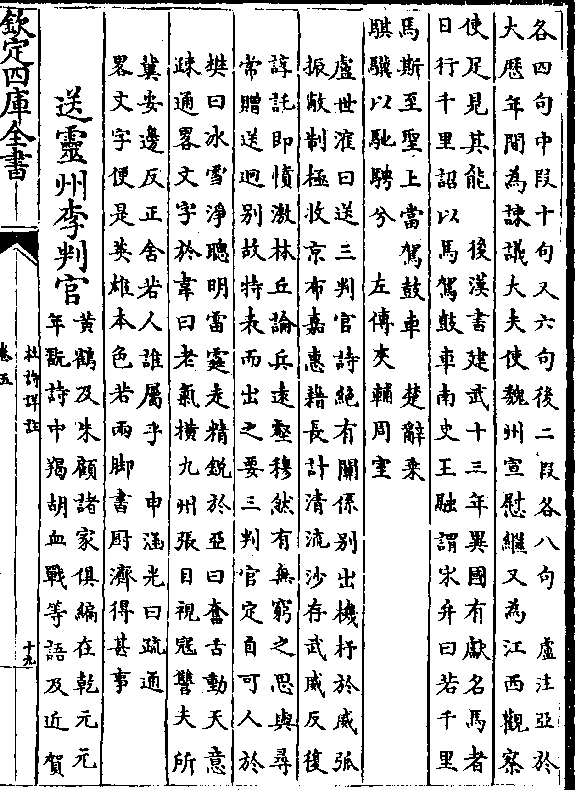 各四句中段十句又六句後二段各八句　盧注亞於
大歷年間為諫議大夫使魏州宣慰繼又為江西觀察
使足見其能　後漢書建武十三年異國有獻名馬者
日行千里詔以馬駕鼓車南史王融謂宋弁曰若千里
馬斯至聖上當駕鼓車　楚辭乘
騏驥以馳騁兮　左傳夾輔周室
盧世㴶曰送三判官詩絕有關係別出機杼於威弧
振敝制極收京布嘉惠藉長計清流沙存武威反復
諄託即憤激林丘論兵遠壑穆然有無窮之思與尋
常贈送迥別故特表而出之要三判官定自可人於
樊曰冰雪淨聰明雷霆走精銳於亞曰奮舌動天意
疎通畧文字於韋曰老氣橫九州張目視寇讐夫所
冀安邊反正舍若人誰屬乎　申涵光曰疏通
畧文字便是英雄本色若兩脚書厨濟得甚事
送靈州李判官
黄鶴及朱顧諸家俱編在乾元元
年翫詩中羯胡血戰等語及近賀
欽定四庫全書
杜詩詳註
卷五
十九